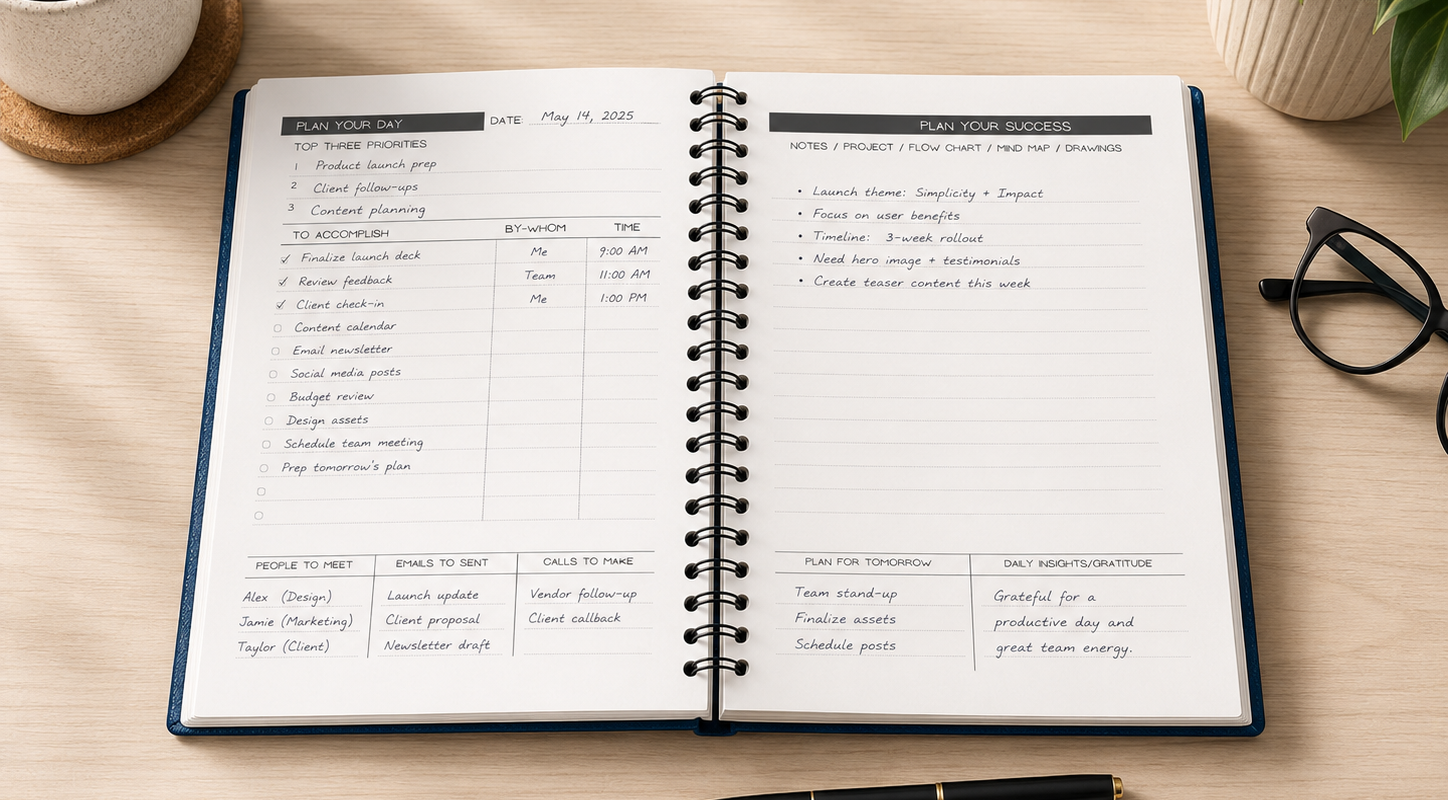 PLAN YOUR DAY
DATE: May 14, 2025
TOP THREE PRIORITIES
1 Product launch prep
2 Client follow-ups
3 Content planning
TO ACCOMPLISH BY-WHOM TIME
✓ Finalize launch deck Me 9:00 AM
✓ Review feedback Team 11:00 AM
✓ Client check-in Me 1:00 PM
Content calendar
Email newsletter
Social media posts
Budget review
Design assets
Schedule team meeting
Prep tomorrow's plan
PEOPLE TO MEET
Alex (Design)
Jamie (Marketing)
Taylor (Client)
EMAILS TO SENT
Launch update
Client proposal
Newsletter draft
CALLS TO MAKE
Vendor follow-up
Client callback
PLAN YOUR SUCCESS
NOTES / PROJECT / FLOW CHART / MIND MAP / DRAWINGS
• Launch theme: Simplicity + Impact
• Focus on user benefits
• Timeline: 3-week rollout
• Need hero image + testimonials
• Create teaser content this week
PLAN FOR TOMORROW
Team stand-up
Finalize assets
Schedule posts
DAILY INSIGHTS/GRATITUDE
Grateful for a
productive day and
great team energy.